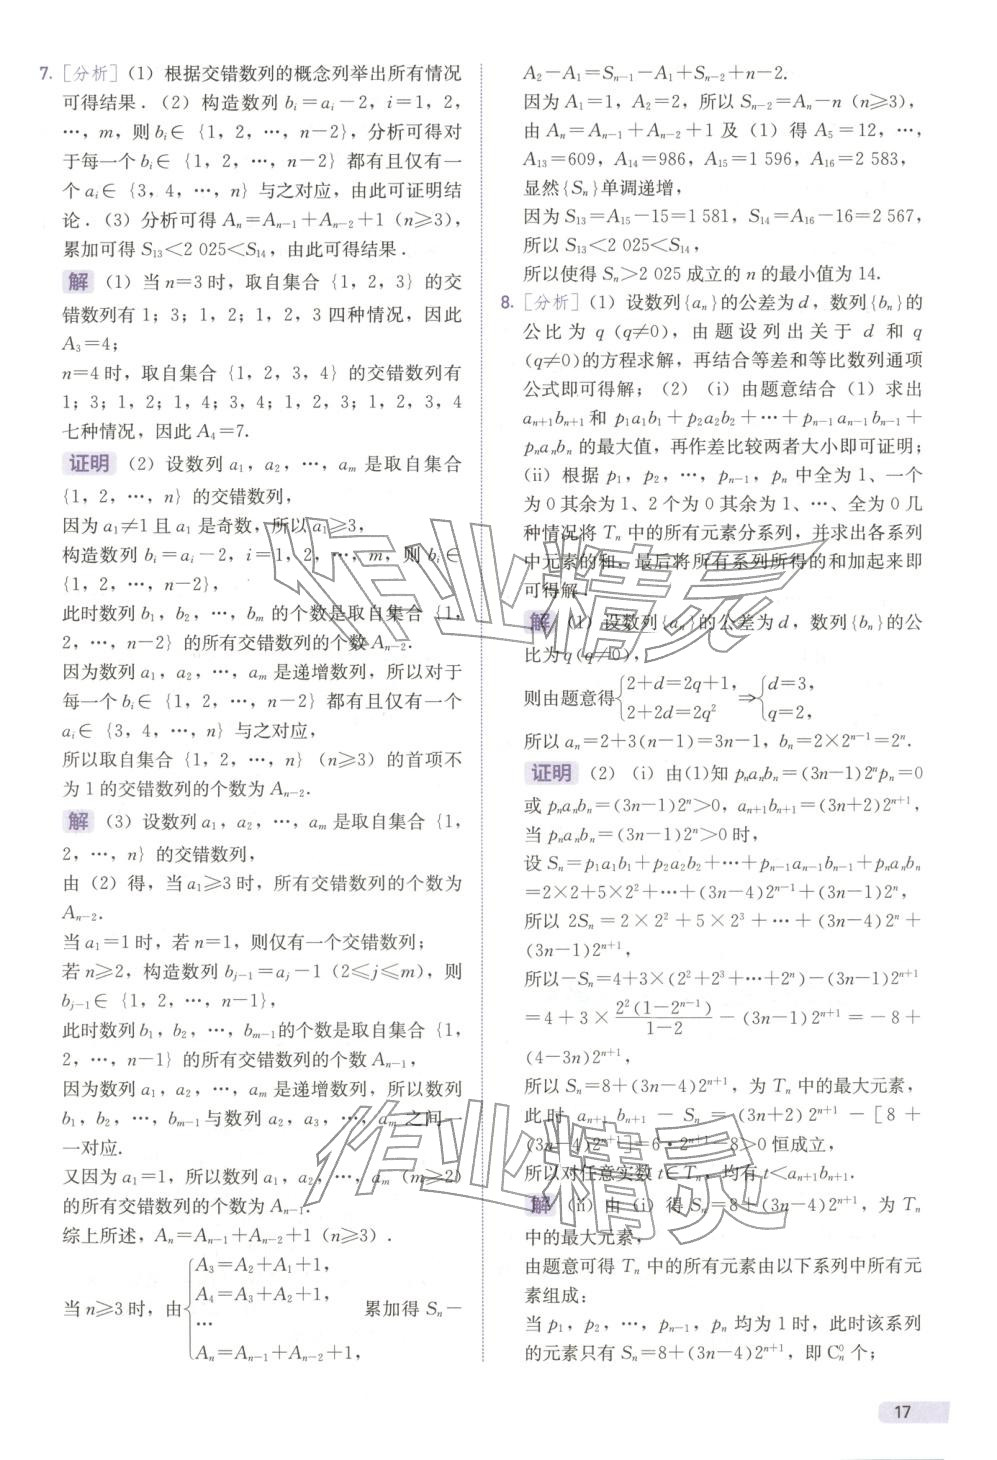 7. [分析]（1）根据交错数列的概念列举出所有情况
可得结果．（2）构造数列 bᵢ＝aᵢ－2，i＝1，2，
…，m，则 bᵢ∈｛1，2，…，n－2｝，分析可得对
于每一个 bᵢ∈｛1，2，…，n－2｝都有且仅有一
个 aᵢ∈｛3，4，…，n｝与之对应，由此可证明结
论．（3）分析可得 Aₙ＝Aₙ₋₁＋Aₙ₋₂＋1（n≥3），
累加可得 S₁₃＜2 025＜S₁₄，由此可得结果．
解（1）当 n＝3 时，取自集合｛1，2，3｝的交
错数列有 1；3；1，2；1，2，3 四种情况，因此
A₃＝4；
n＝4 时，取自集合｛1，2，3，4｝的交错数列有
1；3；1，2；1，4；3，4；1，2，3；1，2，3，4
七种情况，因此 A₄＝7.
证明（2）设数列 a₁，a₂，…，aₘ 是取自集合
｛1，2，…，n｝的交错数列，
因为 a₁≠1 且 a₁ 是奇数，所以 a₁≥3，
构造数列 bᵢ＝aᵢ－2，i＝1，2，…，m，则 bᵢ∈
｛1，2，…，n－2｝，
此时数列 b₁，b₂，…，bₘ 的个数是取自集合｛1，
2，…，n－2｝的所有交错数列的个数 Aₙ₋₂.
因为数列 a₁，a₂，…，aₘ 是递增数列，所以对于
每一个 bᵢ∈｛1，2，…，n－2｝都有且仅有一个
aᵢ∈｛3，4，…，n｝与之对应，
所以取自集合｛1，2，…，n｝（n≥3）的首项不
为 1 的交错数列的个数为 Aₙ₋₂.
解（3）设数列 a₁，a₂，…，aₘ 是取自集合｛1，
2，…，n｝的交错数列，
由（2）得，当 a₁≥3 时，所有交错数列的个数为
Aₙ₋₂.
当 a₁＝1 时，若 n＝1，则仅有一个交错数列；
若 n≥2，构造数列 bⱼ₋₁＝aⱼ－1（2≤j≤m），则
bⱼ₋₁∈｛1，2，…，n－1｝，
此时数列 b₁，b₂，…，bₘ₋₁的个数是取自集合｛1，
2，…，n－1｝的所有交错数列的个数 Aₙ₋₁，
因为数列 a₁，a₂，…，aₘ 是递增数列，所以数列
b₁，b₂，…，bₘ₋₁与数列 a₂，a₃，…，aₘ 之间一
一对应.
又因为 a₁＝1，所以数列 a₁，a₂，…，aₘ（m≥2）
的所有交错数列的个数为 Aₙ₋₁.
综上所述，Aₙ＝Aₙ₋₁＋Aₙ₋₂＋1（n≥3）.
A₃＝A₂＋A₁＋1，
A₄＝A₃＋A₂＋1，
当 n≥3 时，由 … 累加得 Sₙ－
Aₙ＝Aₙ₋₁＋Aₙ₋₂＋1，
A₂－A₁＝Sₙ₋₁－A₁＋Sₙ₋₂＋n－2.
因为 A₁＝1，A₂＝2，所以 Sₙ₋₂＝Aₙ－n（n≥3），
由 Aₙ＝Aₙ₋₁＋Aₙ₋₂＋1 及（1）得 A₅＝12，…，
A₁₃＝609，A₁₄＝986，A₁₅＝1 596，A₁₆＝2 583，
显然｛Sₙ｝单调递增，
因为 S₁₃＝A₁₅－15＝1 581，S₁₄＝A₁₆－16＝2 567，
所以 S₁₃＜2 025＜S₁₄，
所以使得 Sₙ＞2 025 成立的 n 的最小值为 14.
8. [分析]（1）设数列｛aₙ｝的公差为 d，数列｛bₙ｝的
公比为 q（q≠0），由题设列出关于 d 和 q
（q≠0）的方程求解，再结合等差和等比数列通项
公式即可得解；（2）（i）由题意结合（1）求出
aₙ₊₁bₙ₊₁ 和 p₁a₁b₁＋p₂a₂b₂＋…＋pₙ₋₁aₙ₋₁bₙ₋₁＋
pₙaₙbₙ 的最大值，再作差比较两者大小即可证明；
（ii）根据 p₁，p₂，…，pₙ₋₁，pₙ 中全为 1、一个
为 0 其余为 1、2 个为 0 其余为 1、…、全为 0 几
种情况将 Tₙ 中的所有元素分系列，并求出各系列
中元素的和，最后将所有系列所得的和加起来即
可得解.
解（1）设数列｛aₙ｝的公差为 d，数列｛bₙ｝的公
比为 q（q≠0），
则由题意得{2＋d＝2q＋1， 2＋2d＝2q² ⇒ {d＝3， q＝2，
所以 aₙ＝2＋3（n－1）＝3n－1，bₙ＝2×2ⁿ⁻¹＝2ⁿ.
证明（2）（i）由(1)知 pₙaₙbₙ＝(3n－1)2ⁿpₙ＝0
或 pₙaₙbₙ＝(3n－1)2ⁿ＞0，aₙ₊₁bₙ₊₁＝(3n＋2)2ⁿ⁺¹，
当 pₙaₙbₙ＝(3n－1)2ⁿ＞0 时，
设 Sₙ＝p₁a₁b₁＋p₂a₂b₂＋…＋pₙ₋₁aₙ₋₁bₙ₋₁＋pₙaₙbₙ
＝2×2＋5×2²＋…＋(3n－4)2ⁿ⁻¹＋(3n－1)2ⁿ，
所以 2Sₙ＝2×2²＋5×2³＋…＋(3n－4)2ⁿ＋
(3n－1)2ⁿ⁺¹，
所以－Sₙ＝4＋3×(2²＋2³＋…＋2ⁿ)－(3n－1)2ⁿ⁺¹
＝4＋3×2²(1－2ⁿ⁻¹)/(1－2)－(3n－1)2ⁿ⁺¹＝－8＋
(4－3n)2ⁿ⁺¹，
所以 Sₙ＝8＋(3n－4)2ⁿ⁺¹，为 Tₙ 中的最大元素，
此时 aₙ₊₁bₙ₊₁－Sₙ＝(3n＋2)2ⁿ⁺¹－[8＋
(3n－4)2ⁿ⁺¹]＝6·2ⁿ⁺¹－8＞0 恒成立，
所以对任意实数 t∈Tₙ，均有 t＜aₙ₊₁bₙ₊₁.
解（ii）由（i）得 Sₙ＝8＋(3n－4)2ⁿ⁺¹，为 Tₙ
中的最大元素，
由题意可得 Tₙ 中的所有元素由以下系列中所有元
素组成：
当 p₁，p₂，…，pₙ₋₁，pₙ 均为 1 时，此时该系列
的元素只有 Sₙ＝8＋(3n－4)2ⁿ⁺¹，即 C⁰ₙ 个；
17
作业精灵
作业精灵